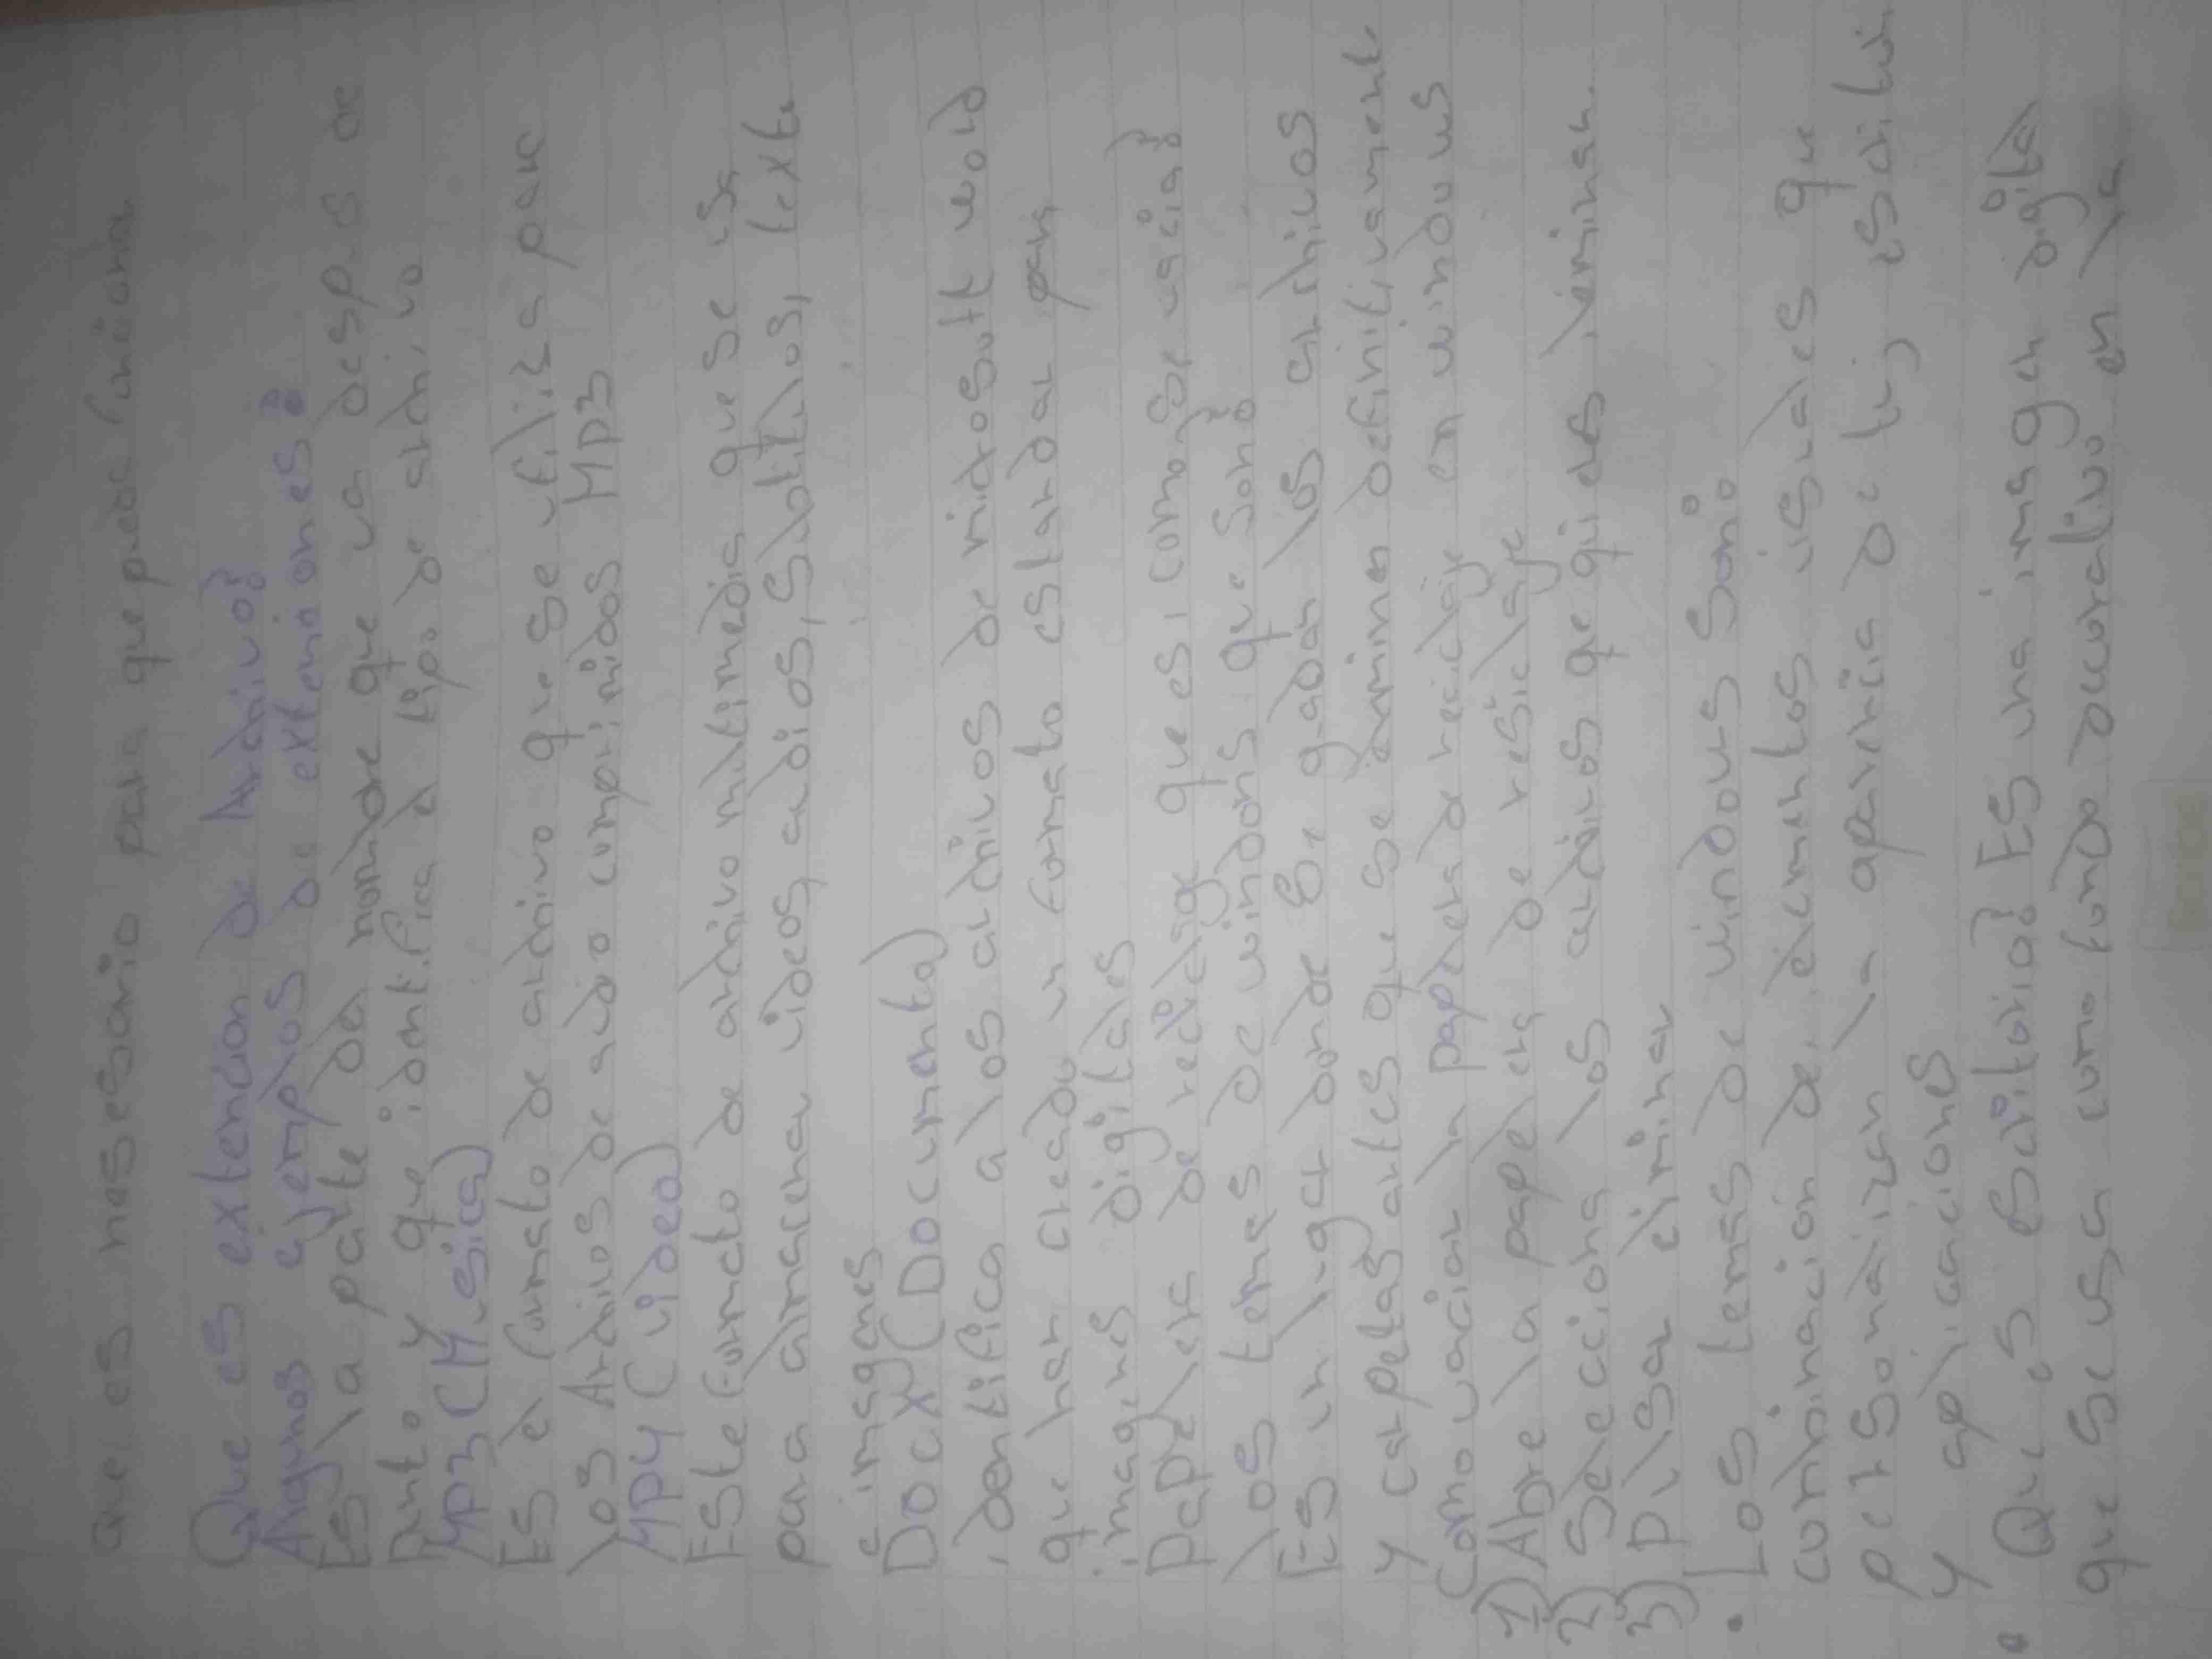 que es nesesario para que pueda funciona
Que es extencion de Archivo?
Algunos ejemplos de extenciones?
Es la parte del nombre que va desp s de
Punto y que identifica el tipo de archivo
Mp3 (Musica)
Es el formato de archivo que se utiliza para
los Archivos de audio comprimidos Mp3
Mp4 (video)
Este formato de archivo multimedia que se usa
para almacenar videos, audios, subtitulos, texto
e imagenes
Docx (Documento)
identifica a los archivos de microsoft word
que han creado un formato estandar para
imagenes digitales
Papelera de reciclaje que es, como se vacia?
los temas de windons que son?
Es un lugar donde Se gadan los archivos
y carpetas antes que se eliminen definitivament
Como vaciar la papelera de reciclaje en windows
1) Abre la papelera de resiclaje
2) Selecciona los archivos qe qieres eliminar.
3) Pulsar eliminar
• Los temas de windows Son:
combinacion de elementos visuales que
personalizan la apariencia de tu escritori
y aplicaciones
• Que es Escritorio? Es una imagen digital
que se usa como fondo decorativo en la